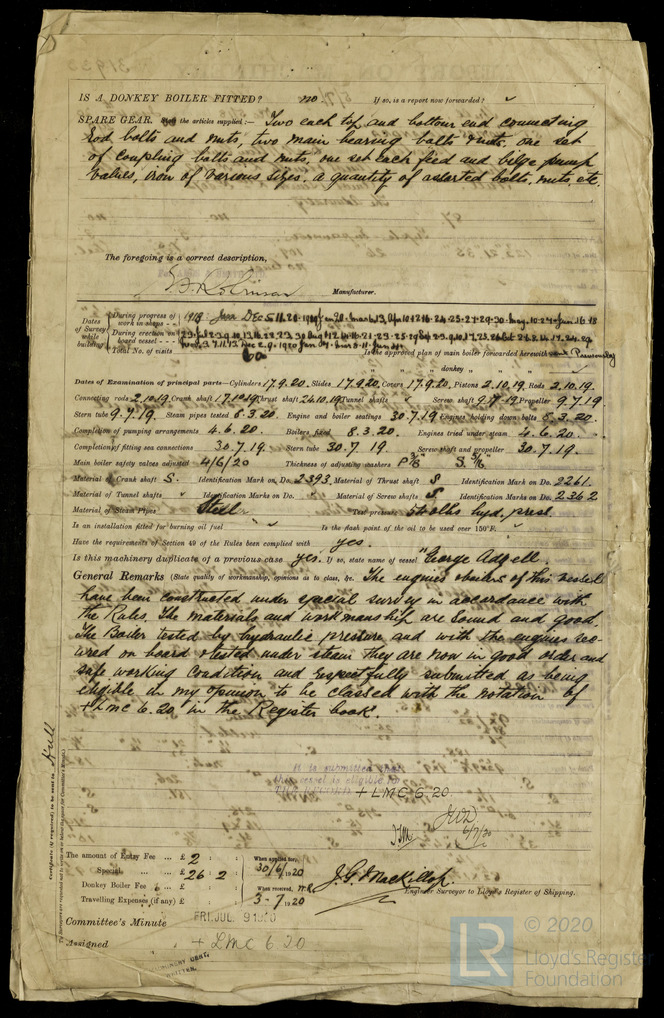 IS A DONKEY BOILER FITTED? no If so, is a report now forwarded? ✓
SPARE GEAR. the articles supplied:— Two each top and bottom end connecting
rod bolts and nuts, two main bearing bolts & nuts, one set
of coupling bolts and nuts, one set each feed and bilge pump
valves, iron of various sizes. a quantity of assorted bolts, nuts, etc.
The foregoing is a correct description,
Manufacturer.
Dates of Survey while building
During progress of work in shops - -
During erection on board vessel - - -
Total No. of visits 60
Is the approved plan of main boiler forwarded herewith
" " " donkey " "
Dates of Examination of principal parts—Cylinders 17.9.20. Slides 17.9.20. Covers 17.9.20. Pistons 2.10.19. Rods 2.10.19.
Connecting rods 2.10.19. Crank shaft 17.10.19 Thrust shaft 24.10.19. Tunnel shafts ✓ Screw shaft 9.7.19. Propeller 9.7.19
Stern tube 9.7.19. Steam pipes tested 6.3.20. Engine and boiler seatings 30.7.19. Engines holding down bolts 8.3.20.
Completion of pumping arrangements 4.6.20. Boilers fixed 8.3.20. Engines tried under steam 4.6.20.
Completion of fitting sea connections 30.7.19. Stern tube 30.7.19. Screw shaft and propeller 30.7.19.
Main boiler safety valves adjusted 4/6/20 Thickness of adjusting washers
Material of Crank shaft S. Identification Mark on Do. 2393. Material of Thrust shaft S Identification Mark on Do. 2261.
Material of Tunnel shafts ✓ Identification Marks on Do. ✓ Material of Screw shafts S Identification Marks on Do. 2362
Material of Steam Pipes Steel Test pressure 540 lbs hyd. press.
Is an installation fitted for burning oil fuel ✓ Is the flash point of the oil to be used over 150°F. ✓
Have the requirements of Section 49 of the Rules been complied with yes.
Is this machinery duplicate of a previous case yes. If so, state name of vessel "George Adgell.
General Remarks (State quality of workmanship, opinions as to class, &c. The engines & boilers of this vessel
have been constructed under special survey in accordance with
the Rules. The materials and workmanship are sound and good.
The Boiler tested by hydraulic pressure and with the engines sec-
ured on board & tested under steam they are now in good order and
safe working condition and respectfully submitted as being
eligible in my opinion to be classed with the notation of
+LMC 6.20 in the Register book.
It is submitted that
this vessel is eligible for
THE RECORD + LMC 6.20.
6/7/20
Certificate (if required) to be sent to Hull
The amount of Entry Fee ... £ 2 : :
Special ... £ 26 : 2 :
Donkey Boiler Fee ... £ : :
Travelling Expenses (if any) £ : :
When applied for, 30/6/1920
When received, 3-7-1920
J.G. Mackillop.
Engineer Surveyor to Lloyd's Register of Shipping.
Committee's Minute FRI. JUL. 9 1920
Assigned + LMC 6 20
MACHINERY CERT.
WRITTEN.
© 2020
LR
Lloyd's Register
Foundation